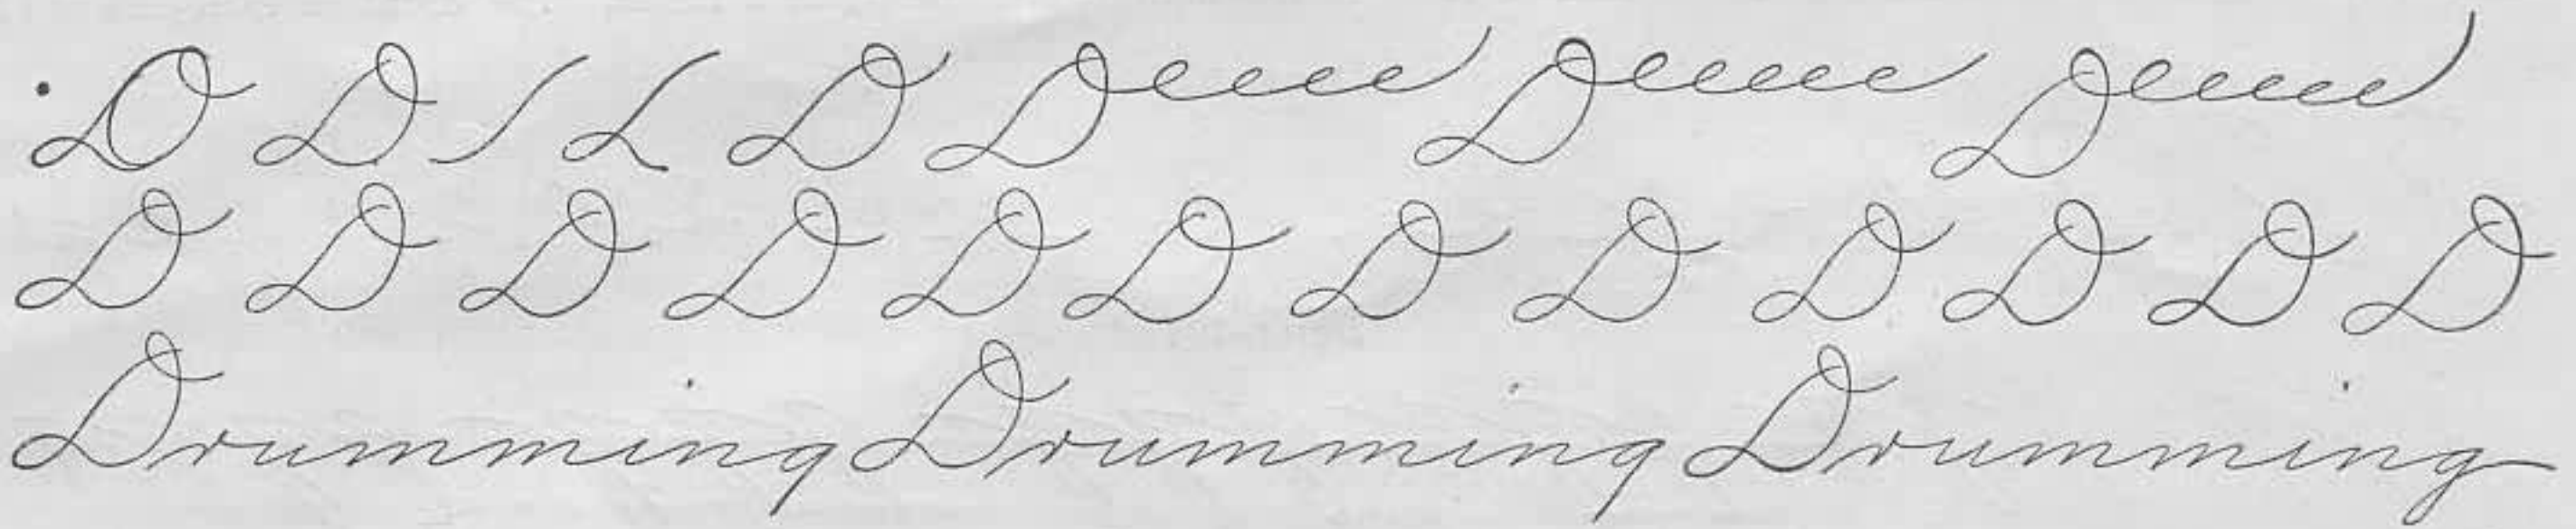 D D D Deeee Deeee Deeee
D D D D D D D D D D D D
Drumming Drumming Drumming